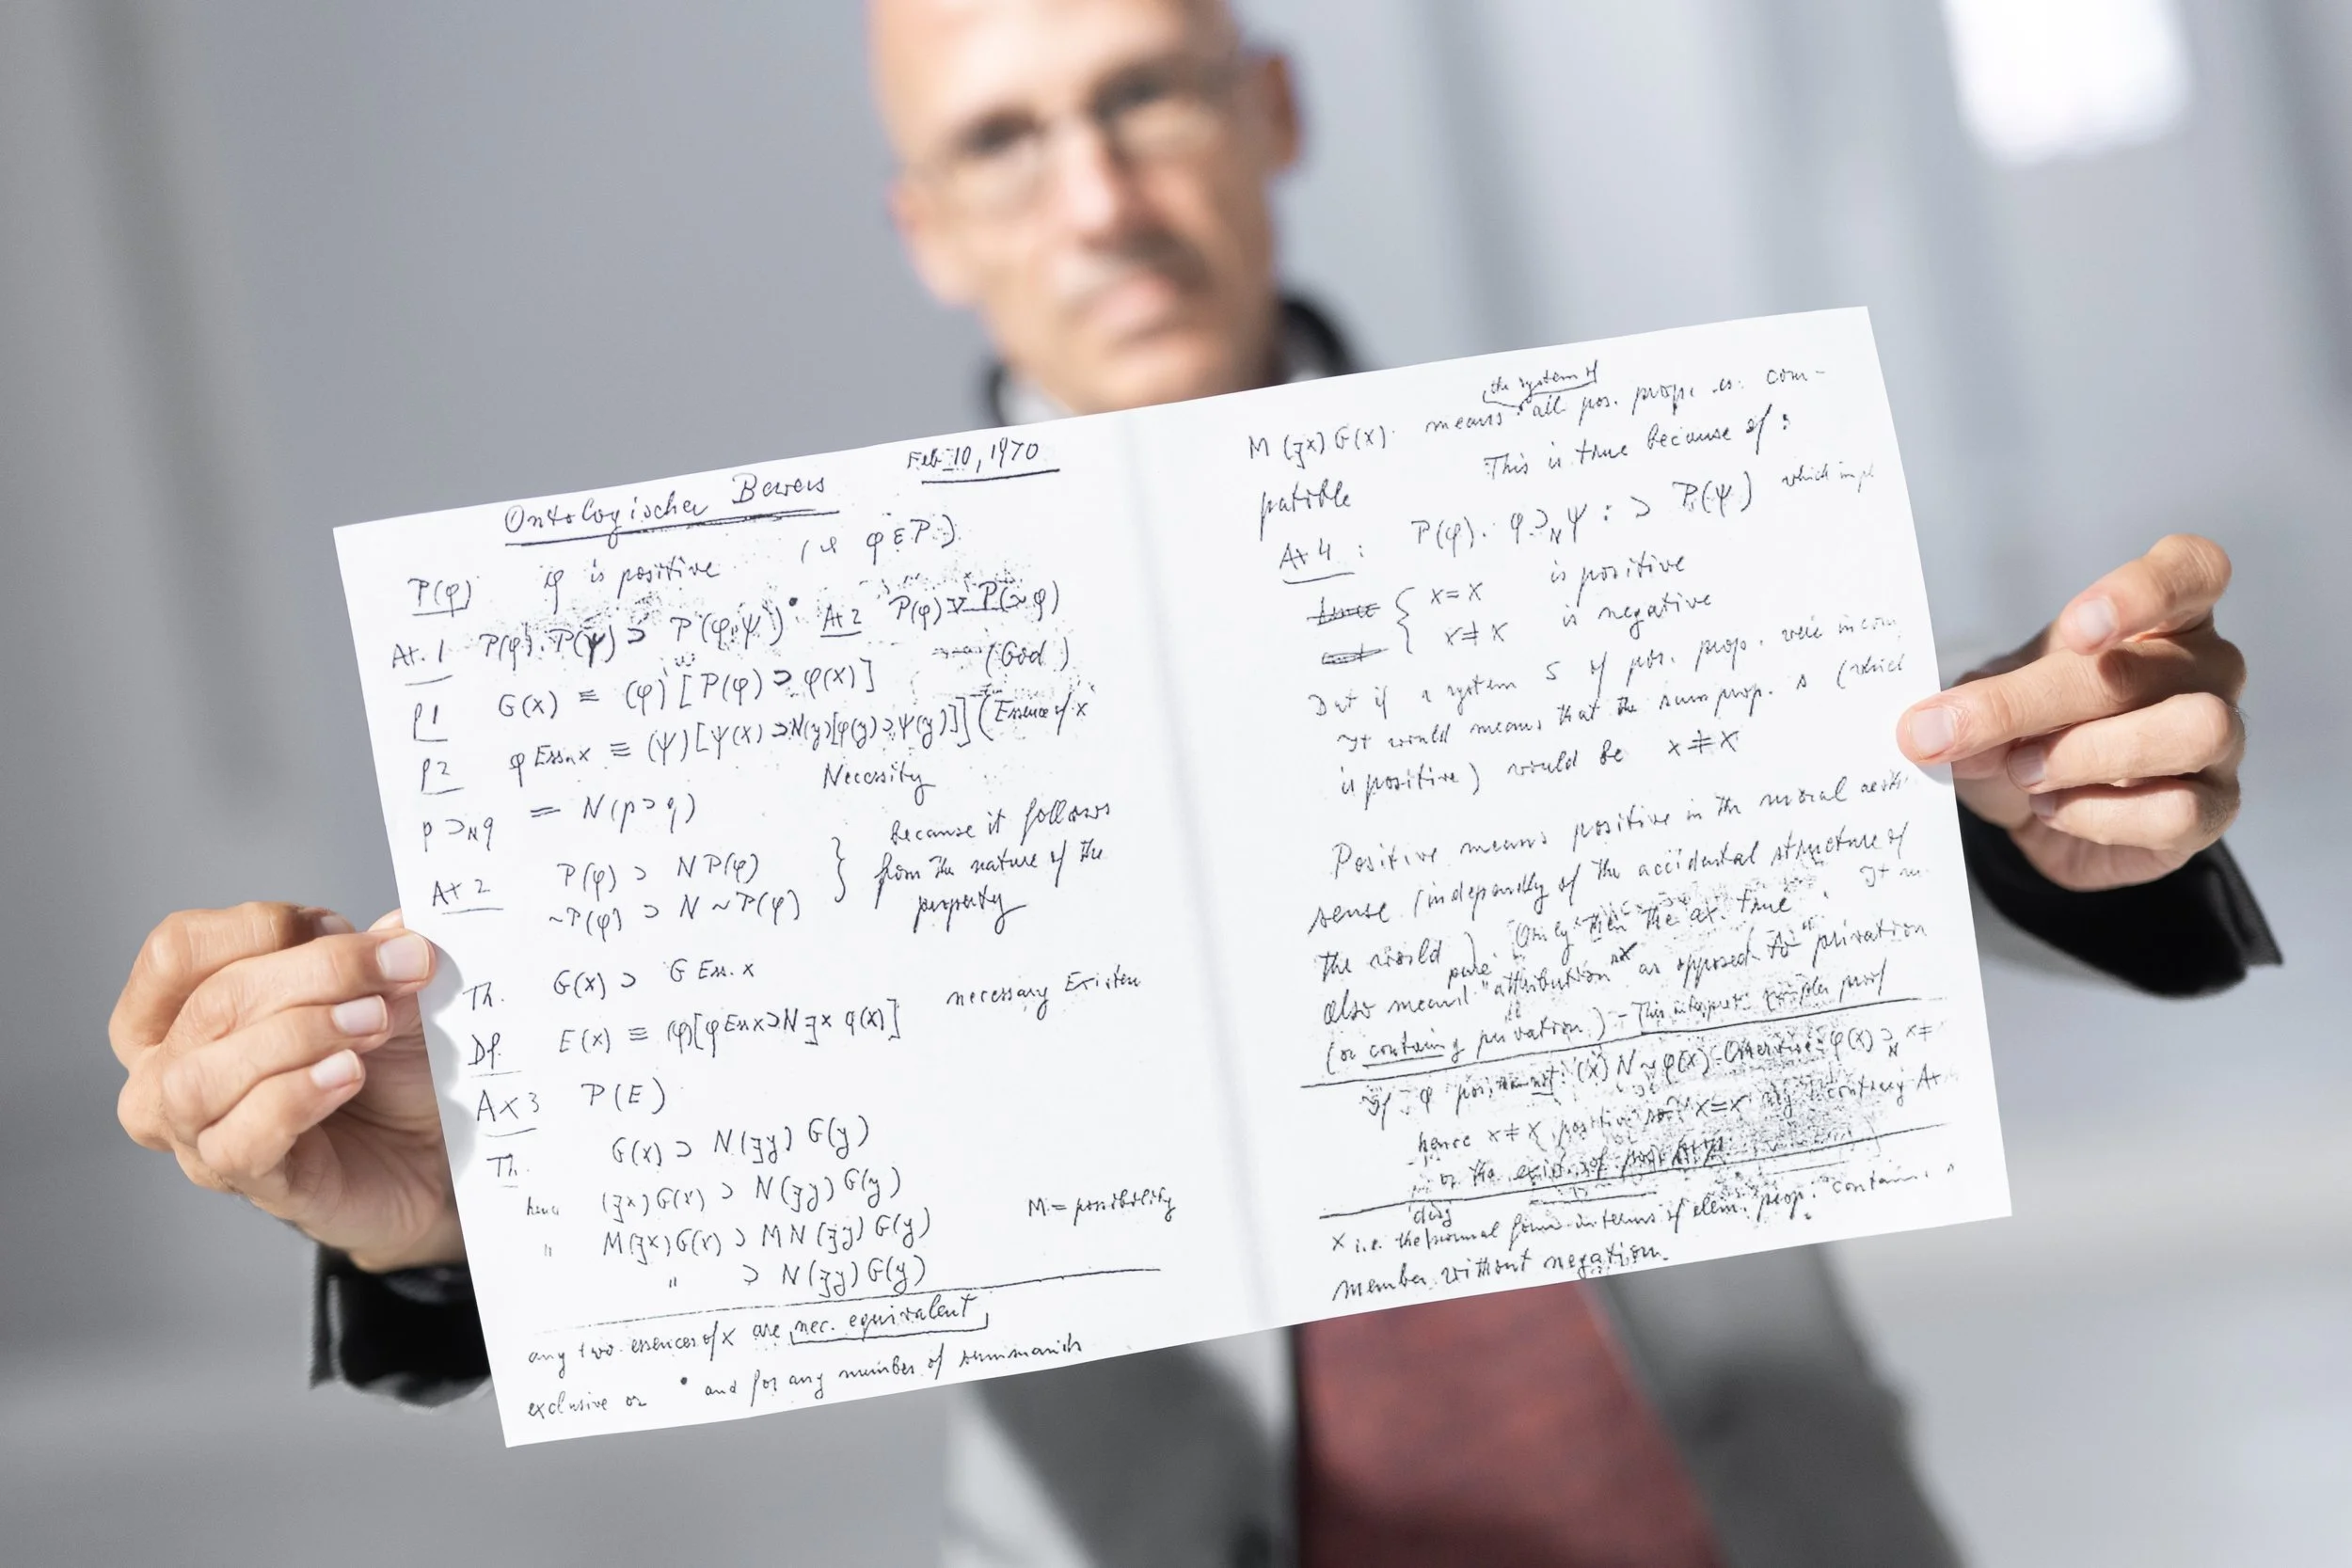 Ontologischer Beweis Feb 10, 1970
P(φ) φ is positive (φ ε P)
At. 1 P(φ).P(ψ) ⊃ P(φ.ψ) • At 2 P(φ) ∨ P(~φ)
P1 G(x) ≡ (φ)[P(φ) ⊃ φ(x)] (God)
P2 φ Ess.x ≡ (ψ)[ψ(x) ⊃ N(y)[φ(y) ⊃ ψ(y)]] (Essence of x
p ⊃N q = N(p ⊃ q) Necessity
At 2 P(φ) ⊃ N P(φ) } because it follows
~P(φ) ⊃ N ~P(φ) from the nature of the
property
Th. G(x) ⊃ G Ess. x
Df. E(x) ≡ (φ)[φ Ess x ⊃ N ∃x φ(x)] necessary Existen
Ax 3 P(E)
Th. G(x) ⊃ N(∃y) G(y)
hence (∃x) G(x) ⊃ N(∃y) G(y)
" M(∃x) G(x) ⊃ M N (∃y) G(y) M = possibility
" ⊃ N(∃y) G(y)
any two essences of x are nec. equivalent
exclusive or • and for any number of summands
the system of
M (∃x) G(x) means all pos. prop. is com-
patible This is true because of :
At 4 : P(φ). φ ⊃N ψ : ⊃ P(ψ) which impl
hence { x = x is positive
and x ≠ x is negative
But if a system S of pos. prop. were incom
It would means that the sum prop. s (which
is positive) would be x ≠ x
Positive means positive in the moral aesth
sense (independly of the accidental structure of
the world). Only then the ax. true. It m
also meanl "pure attribution" x as opposed to "privation
(or containing privation.) - This interpret. simpler proof
If φ pos. not: (x) N ~ φ(x) - Otherwise: φ(x) ⊃N x ≠
hence x ≠ x positive x = x contrary At
or the exist. of
x i.e. the normal form in terms of elem. prop. contains
member without negation.